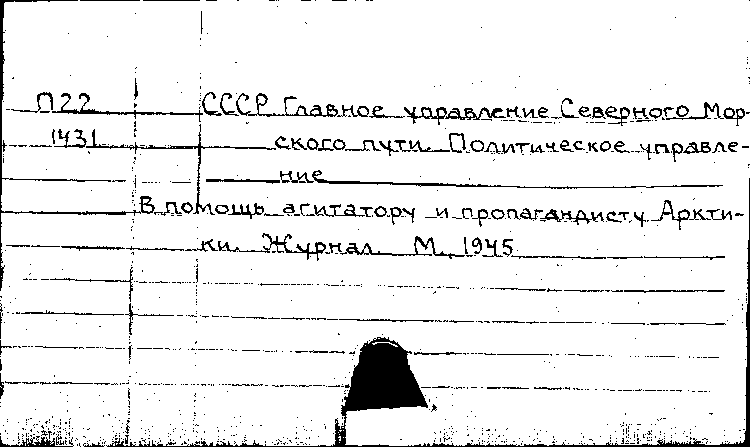 П22 СССР. Главное управление Северного Мор-
1431 ского пути. Политическое управле-
ние
В помощь агитатору и пропагандисту Аркти-
ки. Журнал. М., 1945